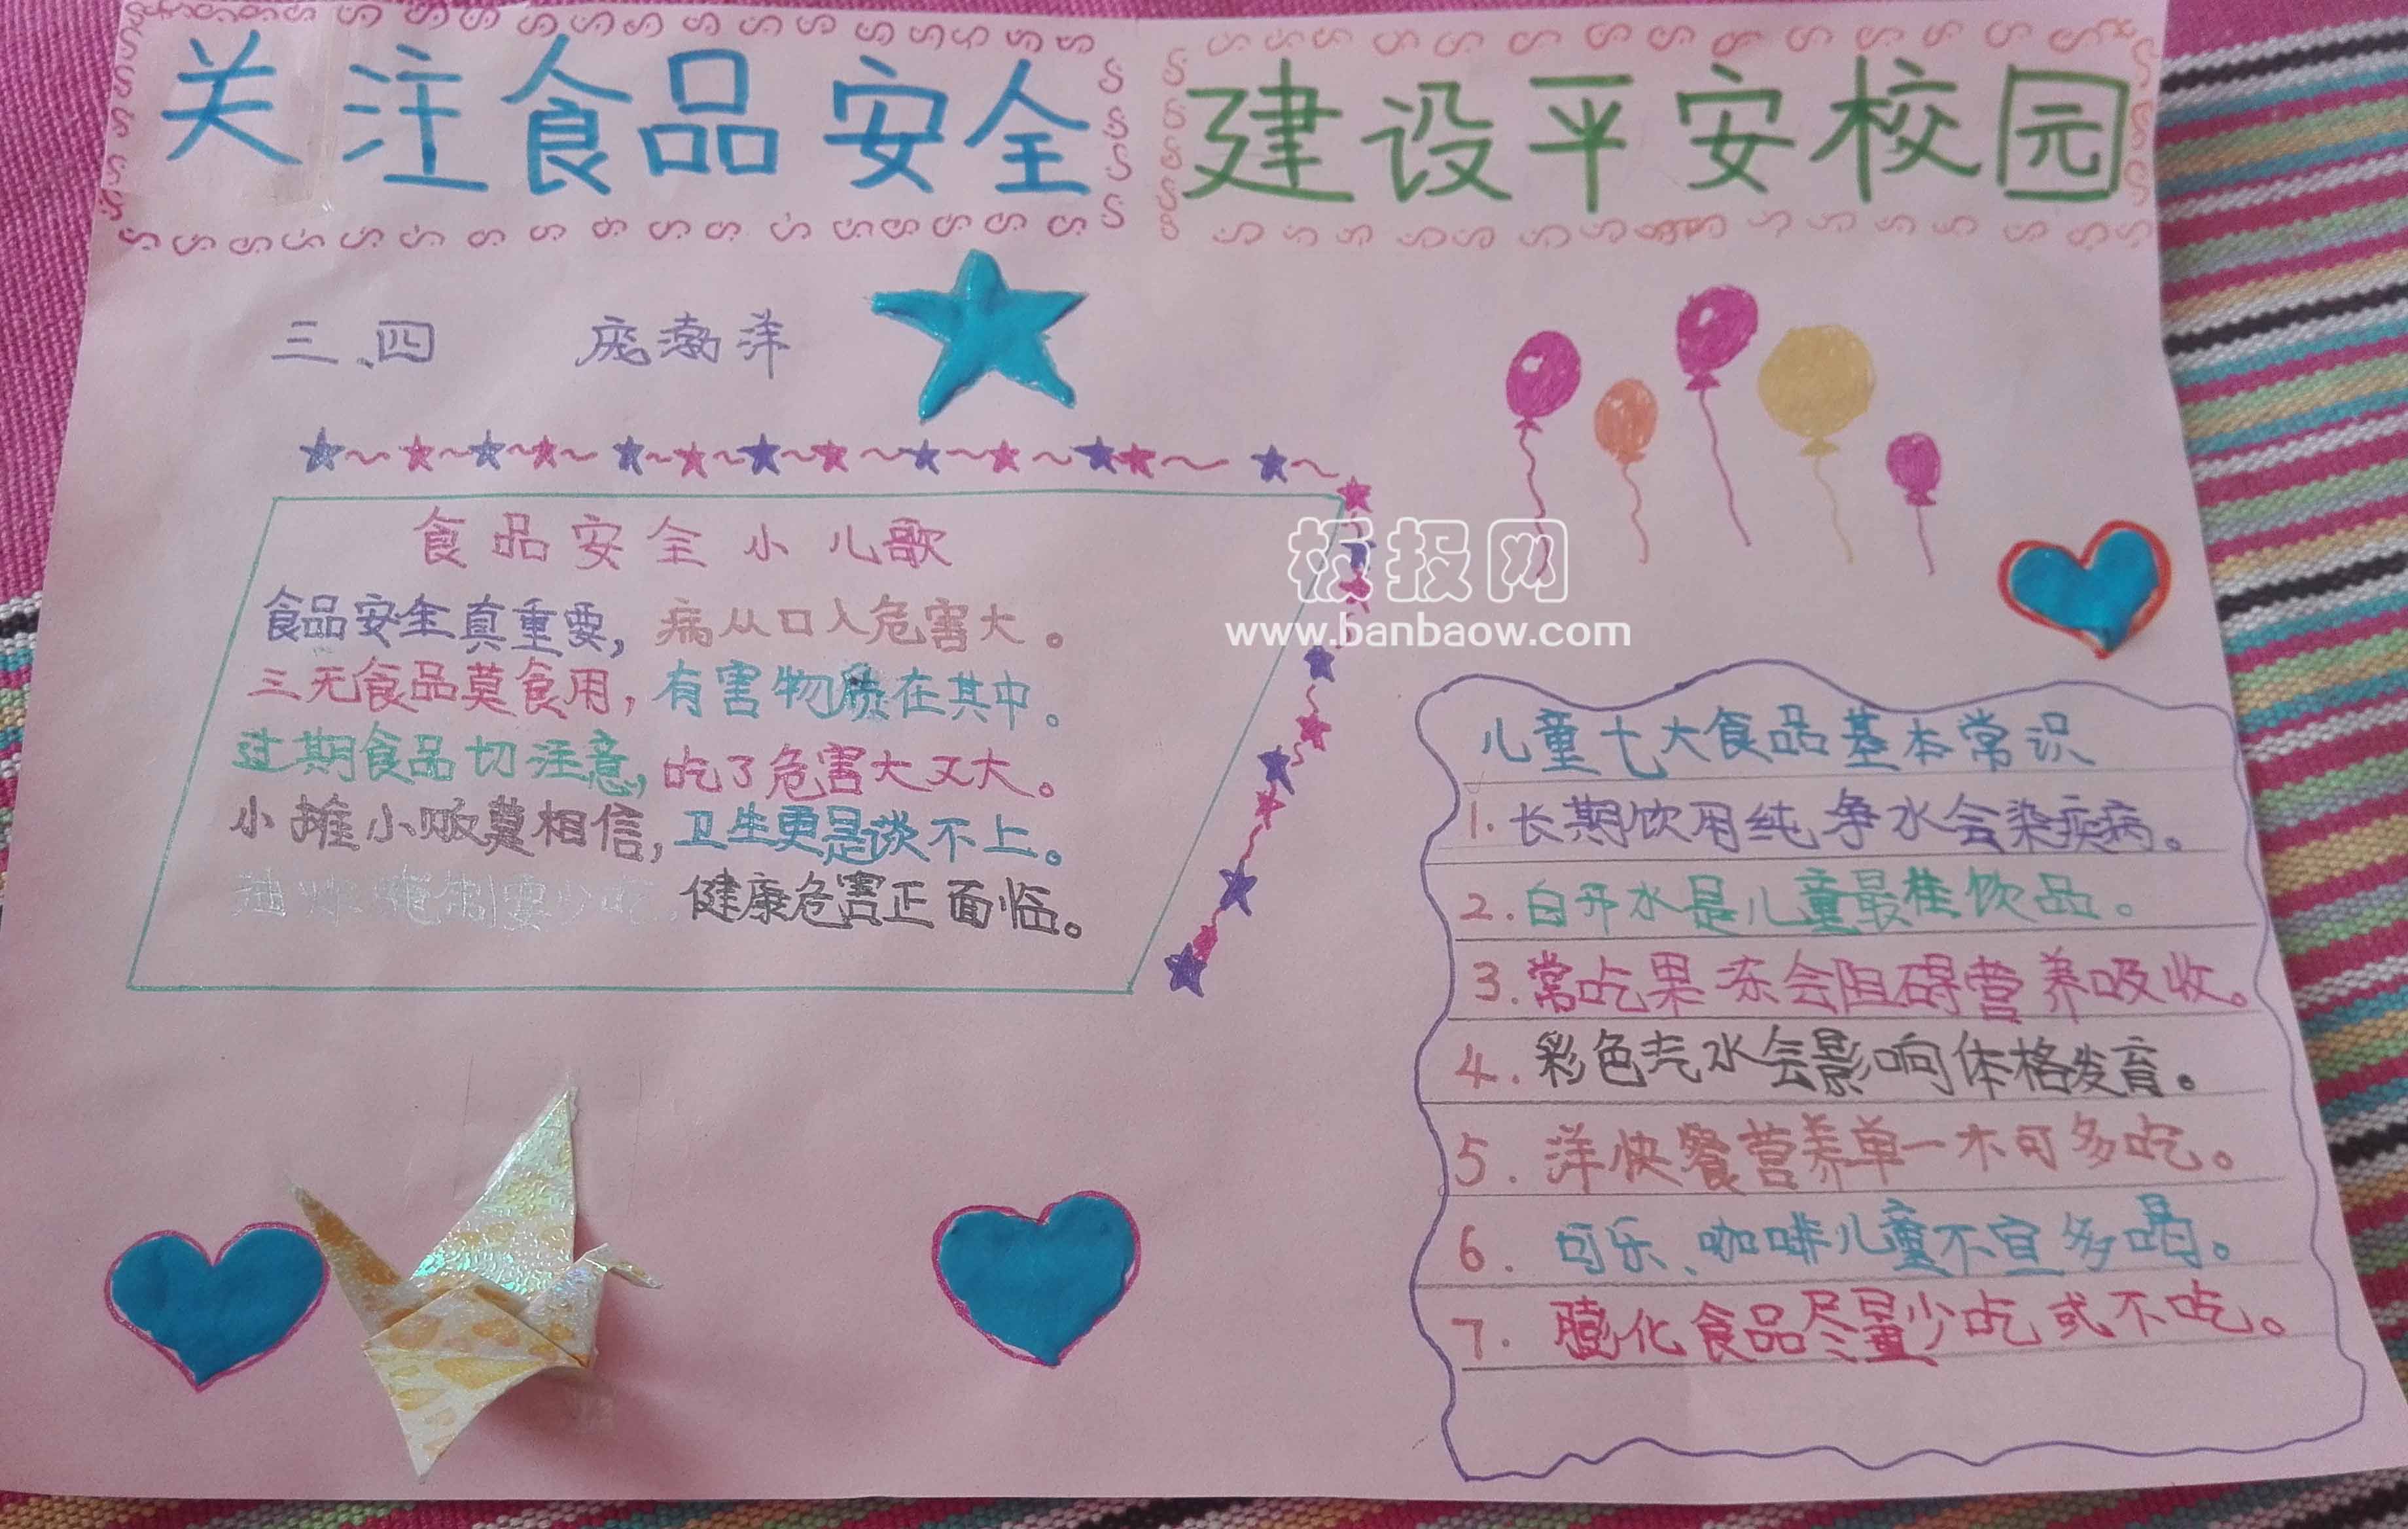 关注食品安全 建设平安校园
三、四 庞渤洋
食品安全小儿歌
食品安全真重要，病从口入危害大。
三无食品莫食用，有害物质在其中。
过期食品切注意，吃了危害大又大。
小摊小贩莫相信，卫生更是谈不上。
油炸腌制要少吃，健康危害正面临。
板报网
www.banbaow.com
儿童七大食品基本常识
1.长期饮用纯净水会染疾病。
2.白开水是儿童最佳饮品。
3.常吃果冻会阻碍营养吸收。
4.彩色汽水会影响体格发育。
5.洋快餐营养单一不可多吃。
6.可乐、咖啡儿童不宜多喝。
7.膨化食品尽量少吃或不吃。